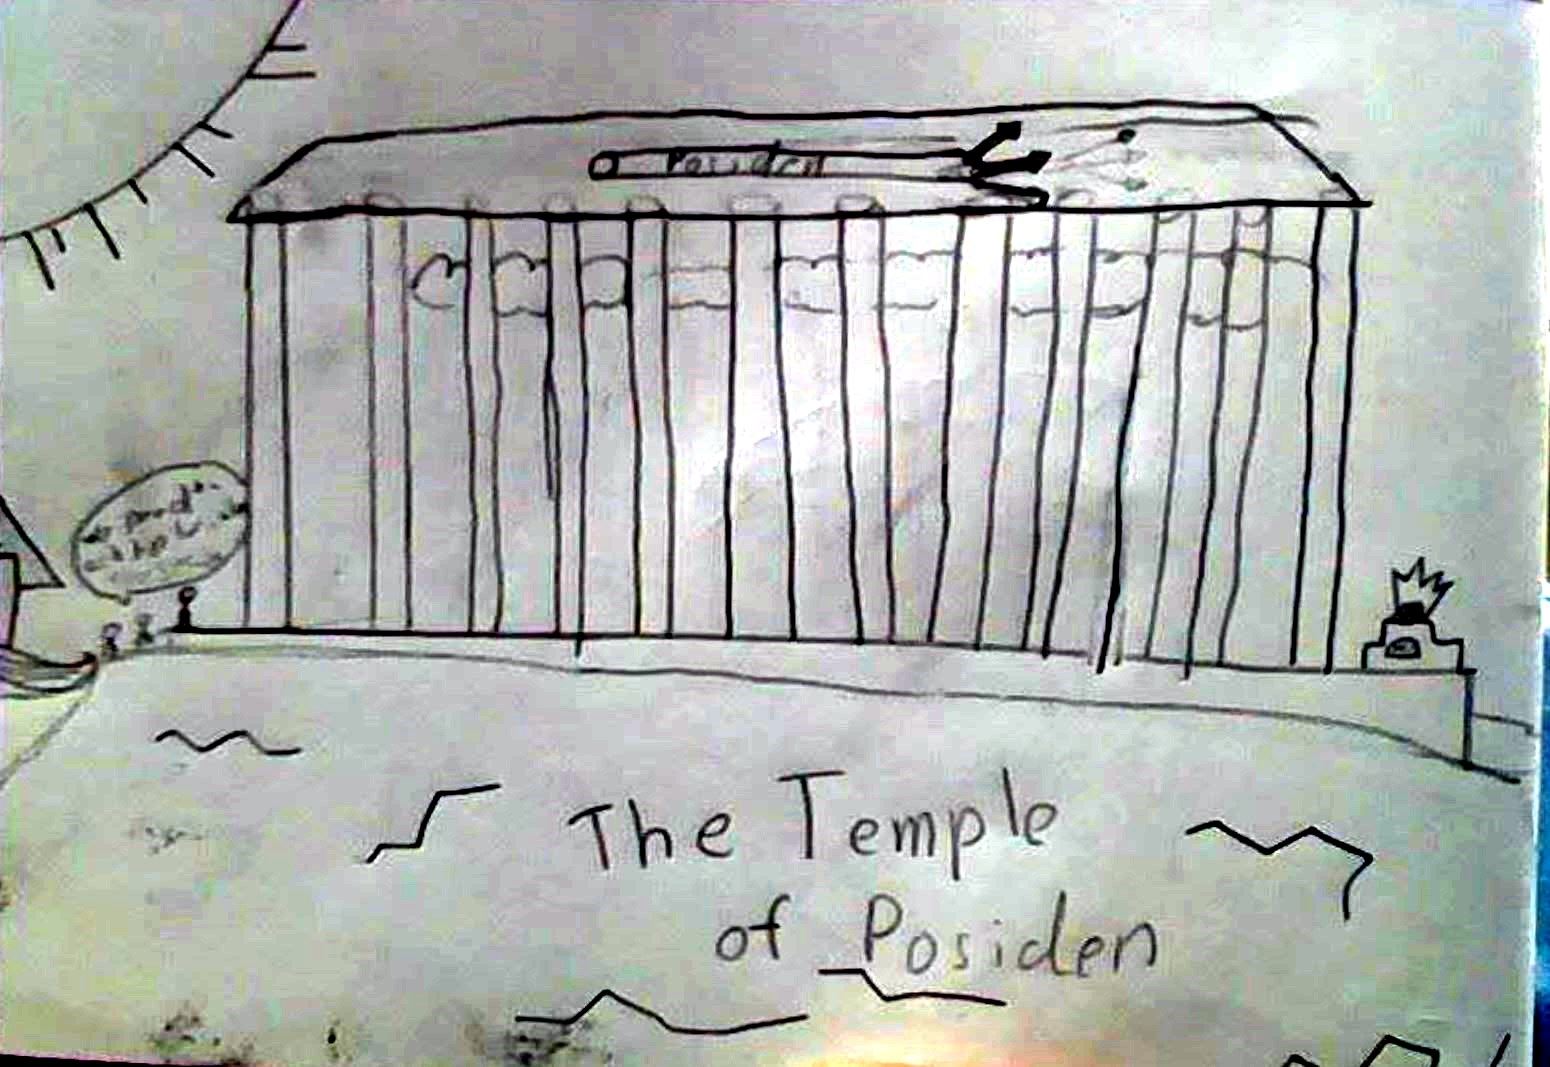 Posiden
The Temple
of Posiden